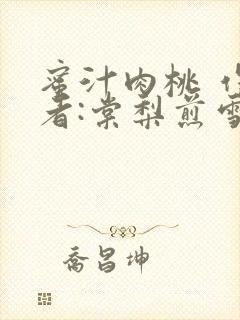 蜜汁肉桃 作
者:棠梨煎雪
乔昌坤